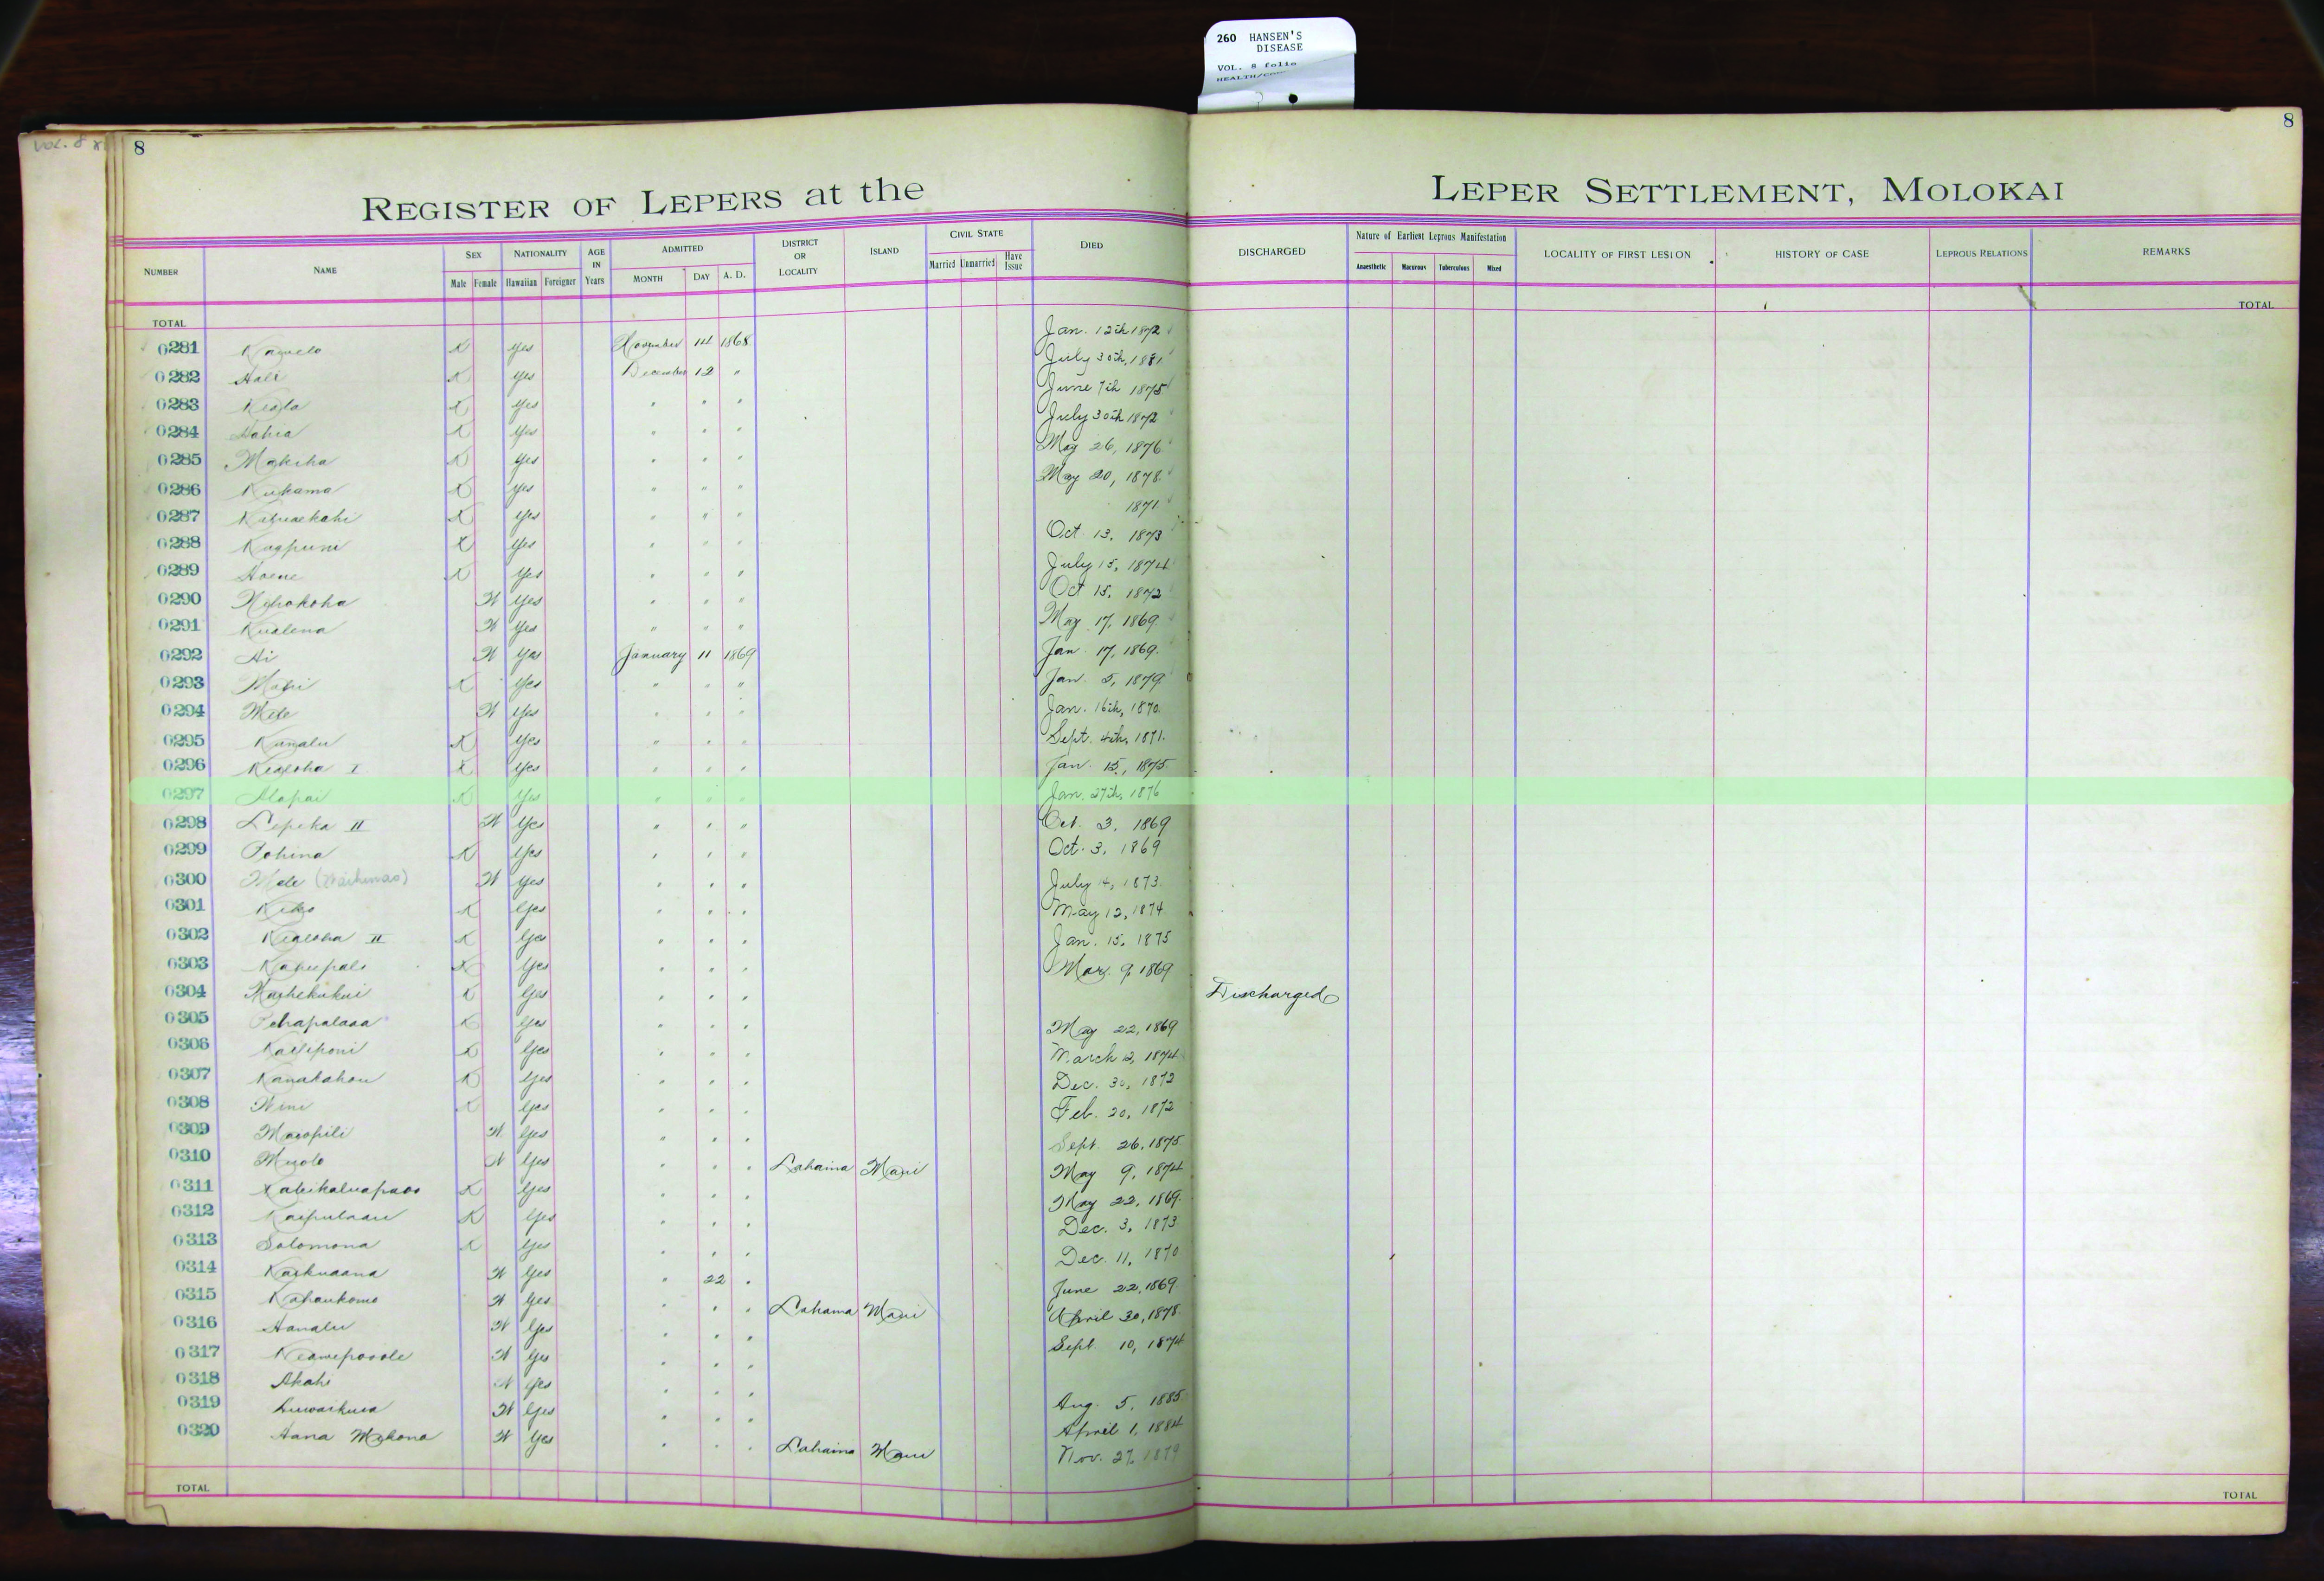 260 HANSEN'S
DISEASE
VOL. 8 folio
VOL. 8
8
8
REGISTER OF LEPERS at the LEPER SETTLEMENT, MOLOKAI
NUMBER NAME SEX Male Female NATIONALITY Hawaiian Foreigner AGE IN Years ADMITTED MONTH DAY A. D. DISTRICT OR LOCALITY ISLAND CIVIL STATE Married Unmarried Have Issue DIED DISCHARGED Nature of Earliest Leprous Manifestation Anaesthetic Macurous Tuberculous Mixed LOCALITY OF FIRST LESION HISTORY OF CASE LEPROUS RELATIONS REMARKS
TOTAL TOTAL
0281 K Yes November 14 1868 Jan. 12th 1872
0282 Hali K Yes December 12 " July 30th, 1881
0283 Keola K Yes " " " June 7th 1875
0284 K Yes " " " July 30th 1872
0285 Makeha K Yes " " " May 26, 1876
0286 Kuhama K Yes " " " May 20, 1878
0287 K Yes " " " 1871
0288 Kaapuni K Yes " " " Oct. 13, 1873
0289 Hoene K Yes " " " July 15, 1874
0290 W Yes " " " Oct 15, 1872
0291 Kualena W Yes " " " May 17, 1869
0292 Ai W Yes January 11 1869 Jan. 17, 1869.
0293 K Yes " " " Jan. 5, 1879
0294 Mele W Yes " " " Jan. 16th, 1870.
0295 K Yes " " " Sept. 4th, 1871.
0296 Kealoha I K Yes " " " Jan. 15, 1875
0297 K Yes " " " Jan. 27th, 1876
0298 Lepeka II W Yes " " " Oct. 3, 1869
0299 Pohina K Yes " " " Oct. 3, 1869
0300 Mele W Yes " " " July 14, 1873.
0301 K Yes " " " May 12, 1874
0302 Kealoha II K Yes " " " Jan. 15, 1875
0303 K Yes " " " Mar. 9, 1869
0304 K Yes " " " Discharged
0305 K Yes " " " May 22, 1869
0306 Kailiponi K Yes " " " March 12, 1874
0307 Kanakahou K Yes " " " Dec. 30, 1872
0308 Wini K Yes " " " Feb. 20, 1872
0309 Maoopili W Yes " " " Sept. 26, 1875
0310 W Yes " " " Lahaina Maui May 9, 1874
0311 K Yes " " " May 22, 1869.
0312 K Yes " " " Dec. 3, 1873
0313 Solomona K Yes " " " Dec. 11, 1870
0314 Kaikuaana W Yes " 22 " June 22, 1869.
0315 W Yes " " " Lahaina Maui April 30, 1878.
0316 Hanalu W Yes " " " Sept. 10, 1874
0317 Keawepooole W Yes " " "
0318 Akahi W Yes " " " Aug. 5, 1885
0319 W Yes " " " April 1, 1884
0320 Hana W Yes " " " Lahaina Maui Nov. 27, 1879
TOTAL TOTAL